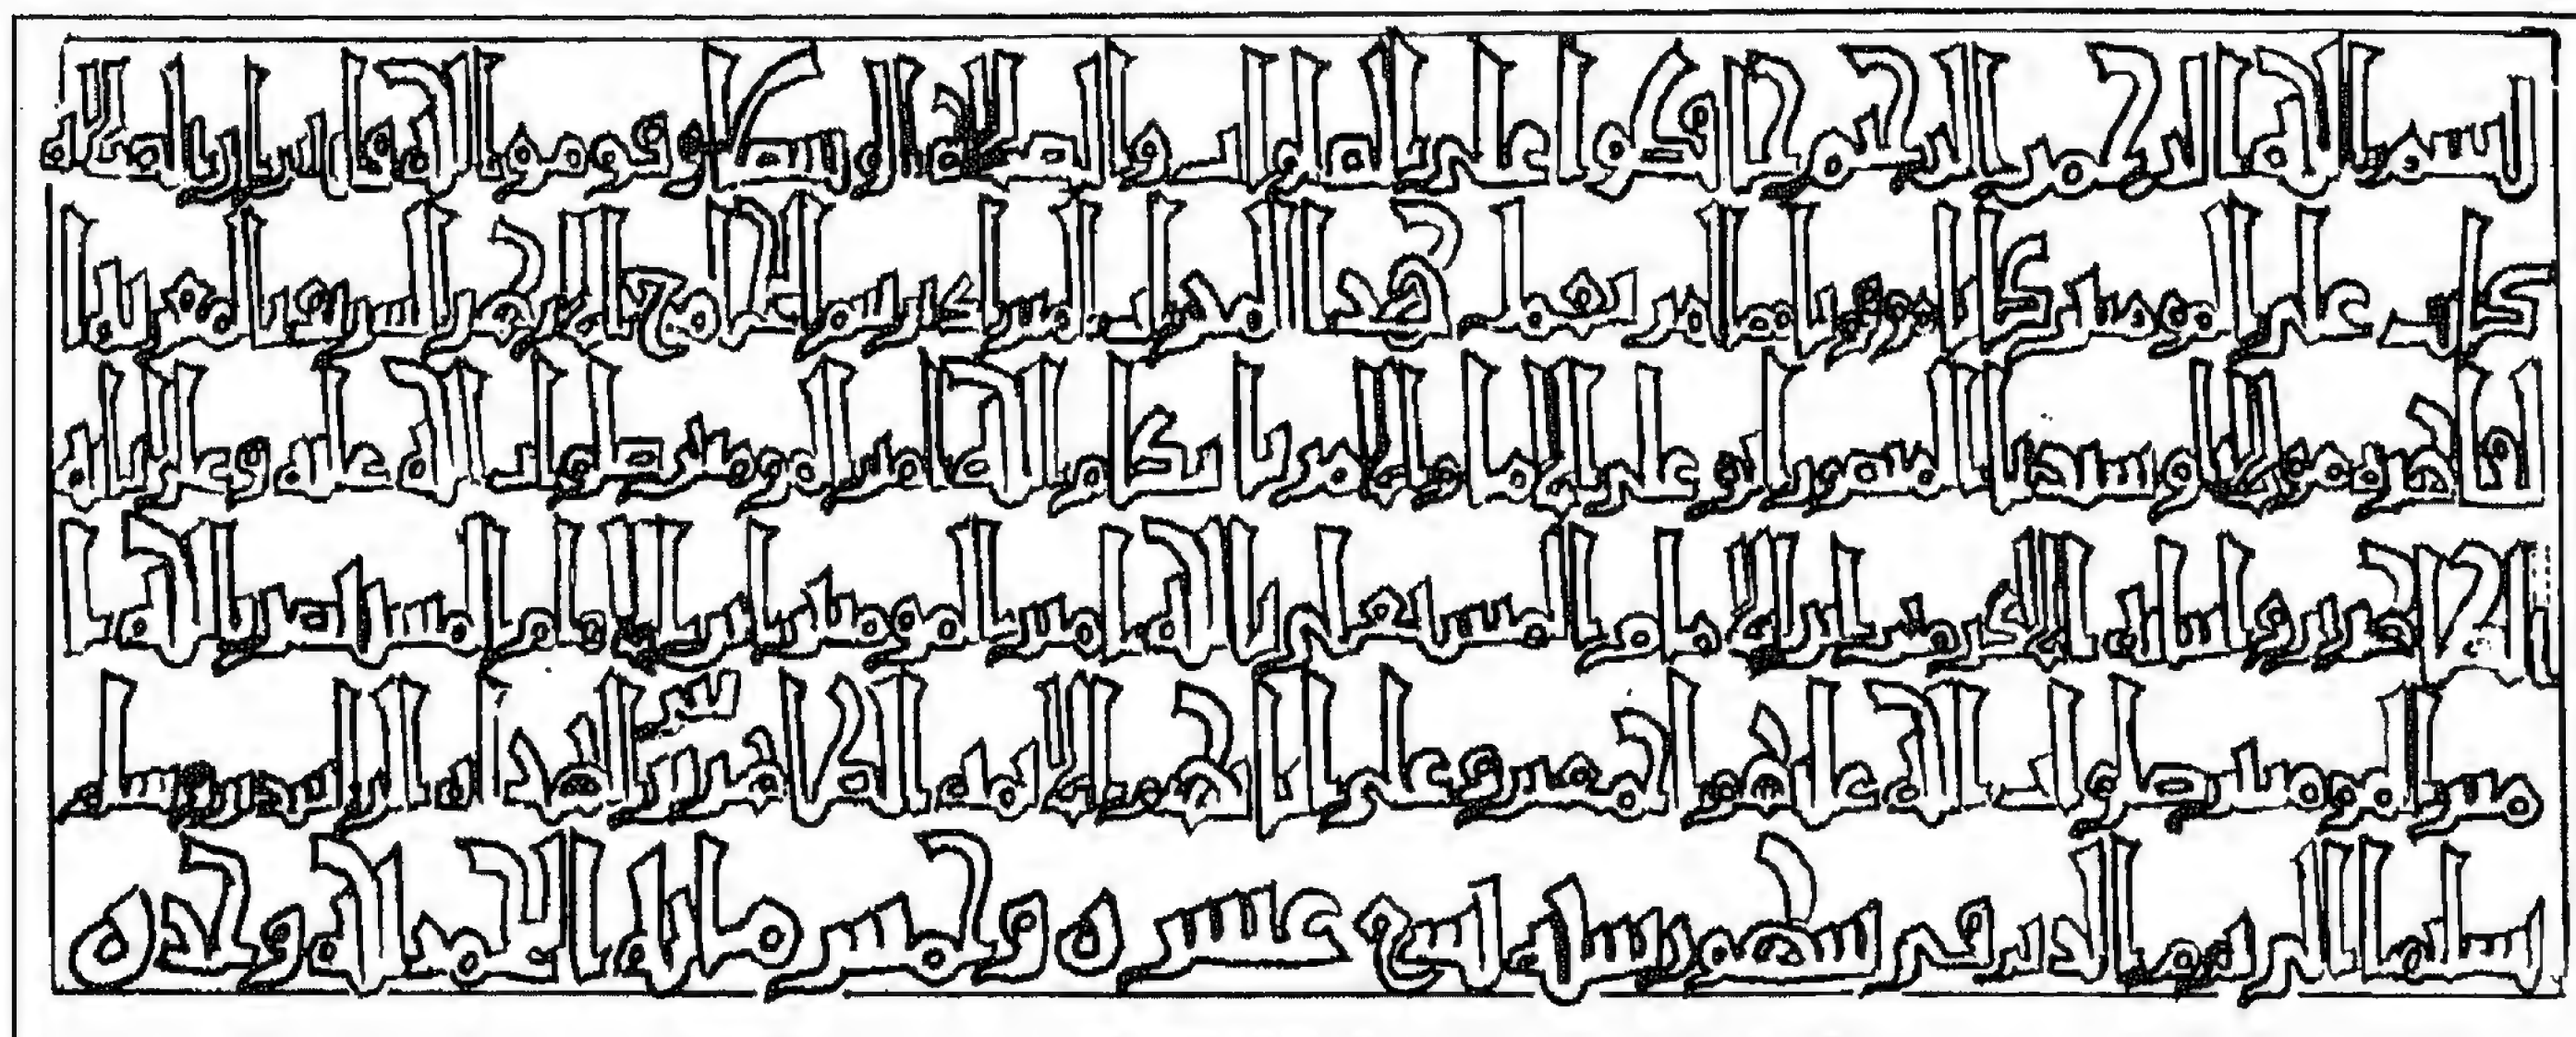 بسم الله الرحمن الرحيم حافظوا على الصلوات والصلاة الوسطى وقوموا لله قانتين ان الصلاة
كانت على المؤمنين كتابا موقوتا مما امر بعمل هذا المحراب المبارك برسم الجامع الازهر الشريف بالمعزية ا
لقاهرة مولانا وسيدنا المنصور ابو علي الامام الامر باحكام الله امير المؤمنين صلوات الله عليه وعلى ابائه
الطاهرين وابنائه الاكرمين ابن الامام المستعلي بالله امير المؤمنين ابن الامام المستنصر بالله ا
مير المؤمنين صلوات الله عليهم اجمعين وعلى ابائهم الائمة الطاهرين بني الهداة الراشدين وسلم
تسليما الى يوم الدين في شهور سنة تسع عشرة وخمس مائة الحمد لله وحده